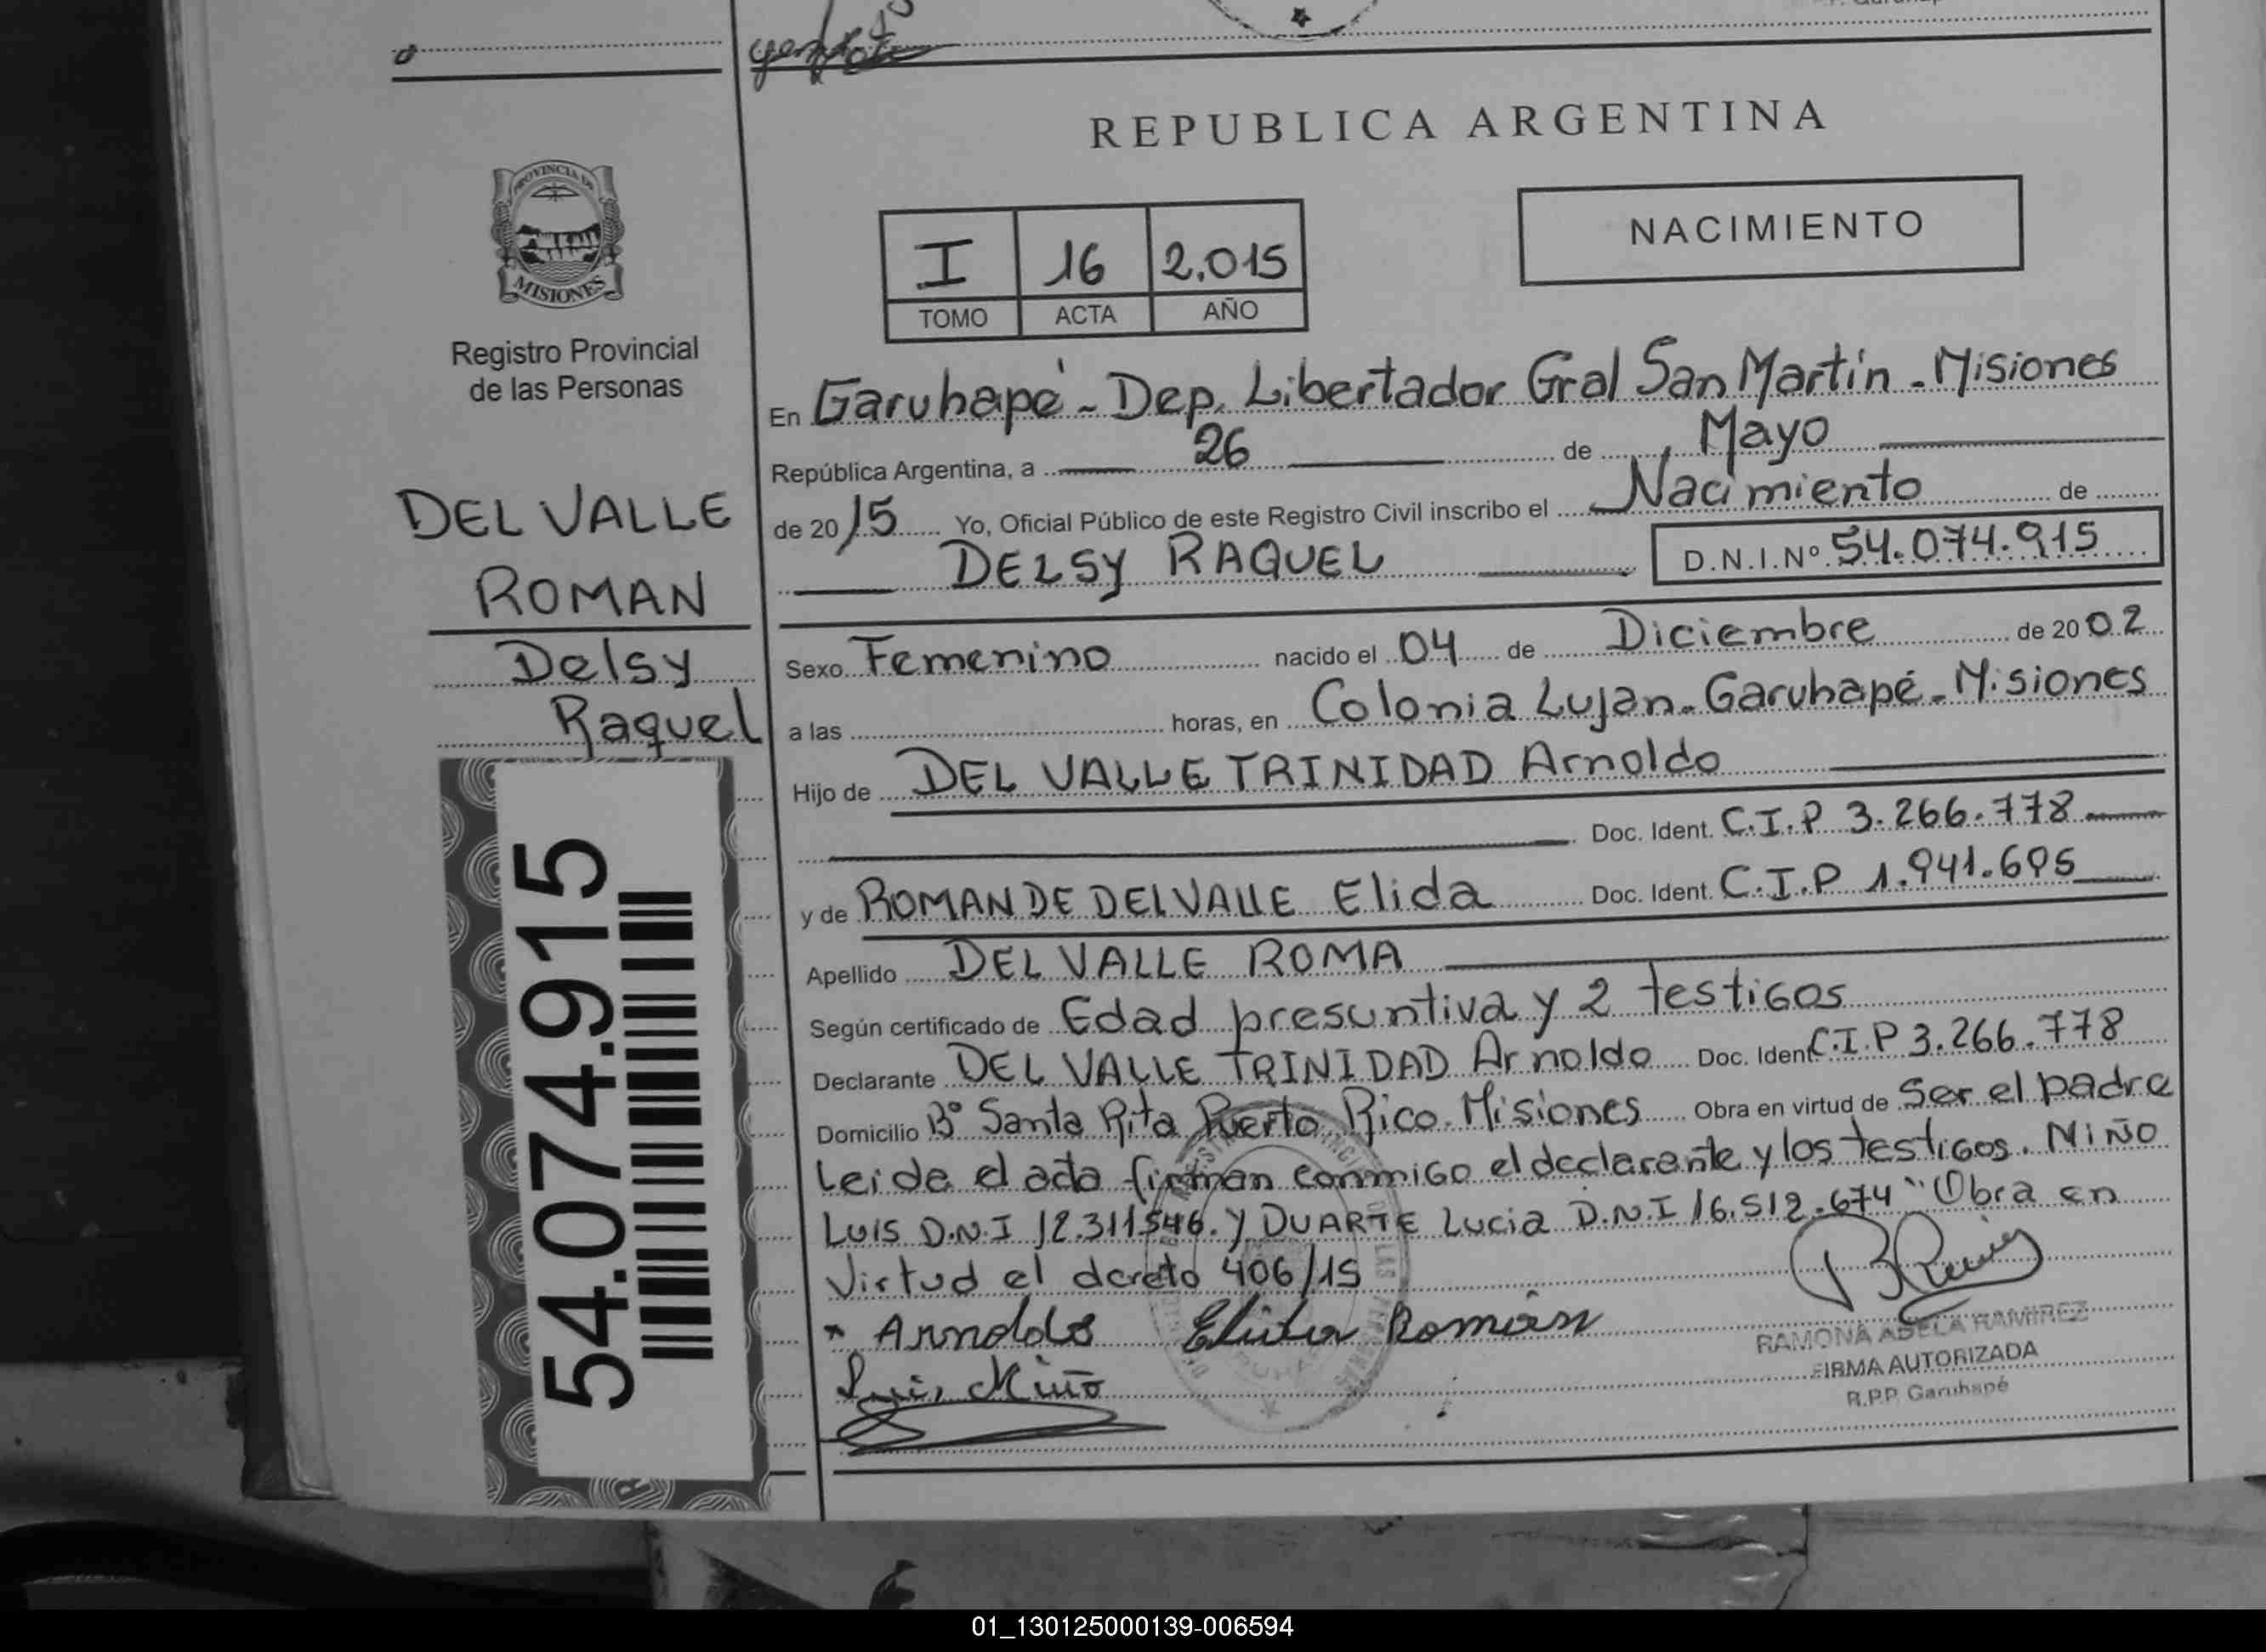 REPUBLICA ARGENTINA
PROVINCIA DE
MISIONES
Registro Provincial
de las Personas
I 16 2.015
TOMO ACTA AÑO
NACIMIENTO
DEL VALLE
ROMAN
Delsy
Raquel
54.074.915
En Garuhapé - Dep. Libertador Gral San Martín - Misiones
República Argentina, a 26 de Mayo
de 2015 Yo, Oficial Público de este Registro Civil inscribo el Nacimiento de
DELSY RAQUEL D.N.I.Nº 54.074.915
Sexo Femenino nacido el 04 de Diciembre de 2002
a las horas, en Colonia Lujan - Garuhapé - Misiones
Hijo de DEL VALLE TRINIDAD Arnoldo
Doc. Ident. C.I.P 3.266.778
y de ROMAN DE DEL VALLE Elida Doc. Ident. C.I.P 1.941.695
Apellido DEL VALLE ROMA
Según certificado de Edad presuntiva y 2 testigos
Declarante DEL VALLE TRINIDAD Arnoldo Doc. Ident. C.I.P 3.266.778
Domicilio Bº Santa Rita Puerto Rico. Misiones Obra en virtud de Ser el padre
Leida el acta firman conmigo el declarante y los testigos. NIÑO
Luis D.N.I 12.311546. y DUARTE Lucia D.N.I 16.512.674 "Obra en
Virtud el decreto 406/15
Arnoldo Elida Román
Luis Niño
RAMONA ADELA RAMIREZ
FIRMA AUTORIZADA
R.P.P. Garuhapé
01_130125000139-006594